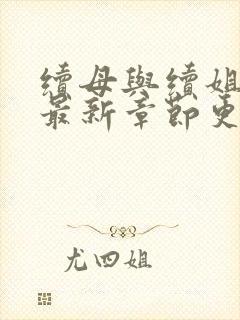 續母與續姐
最新章節更
尤四姐